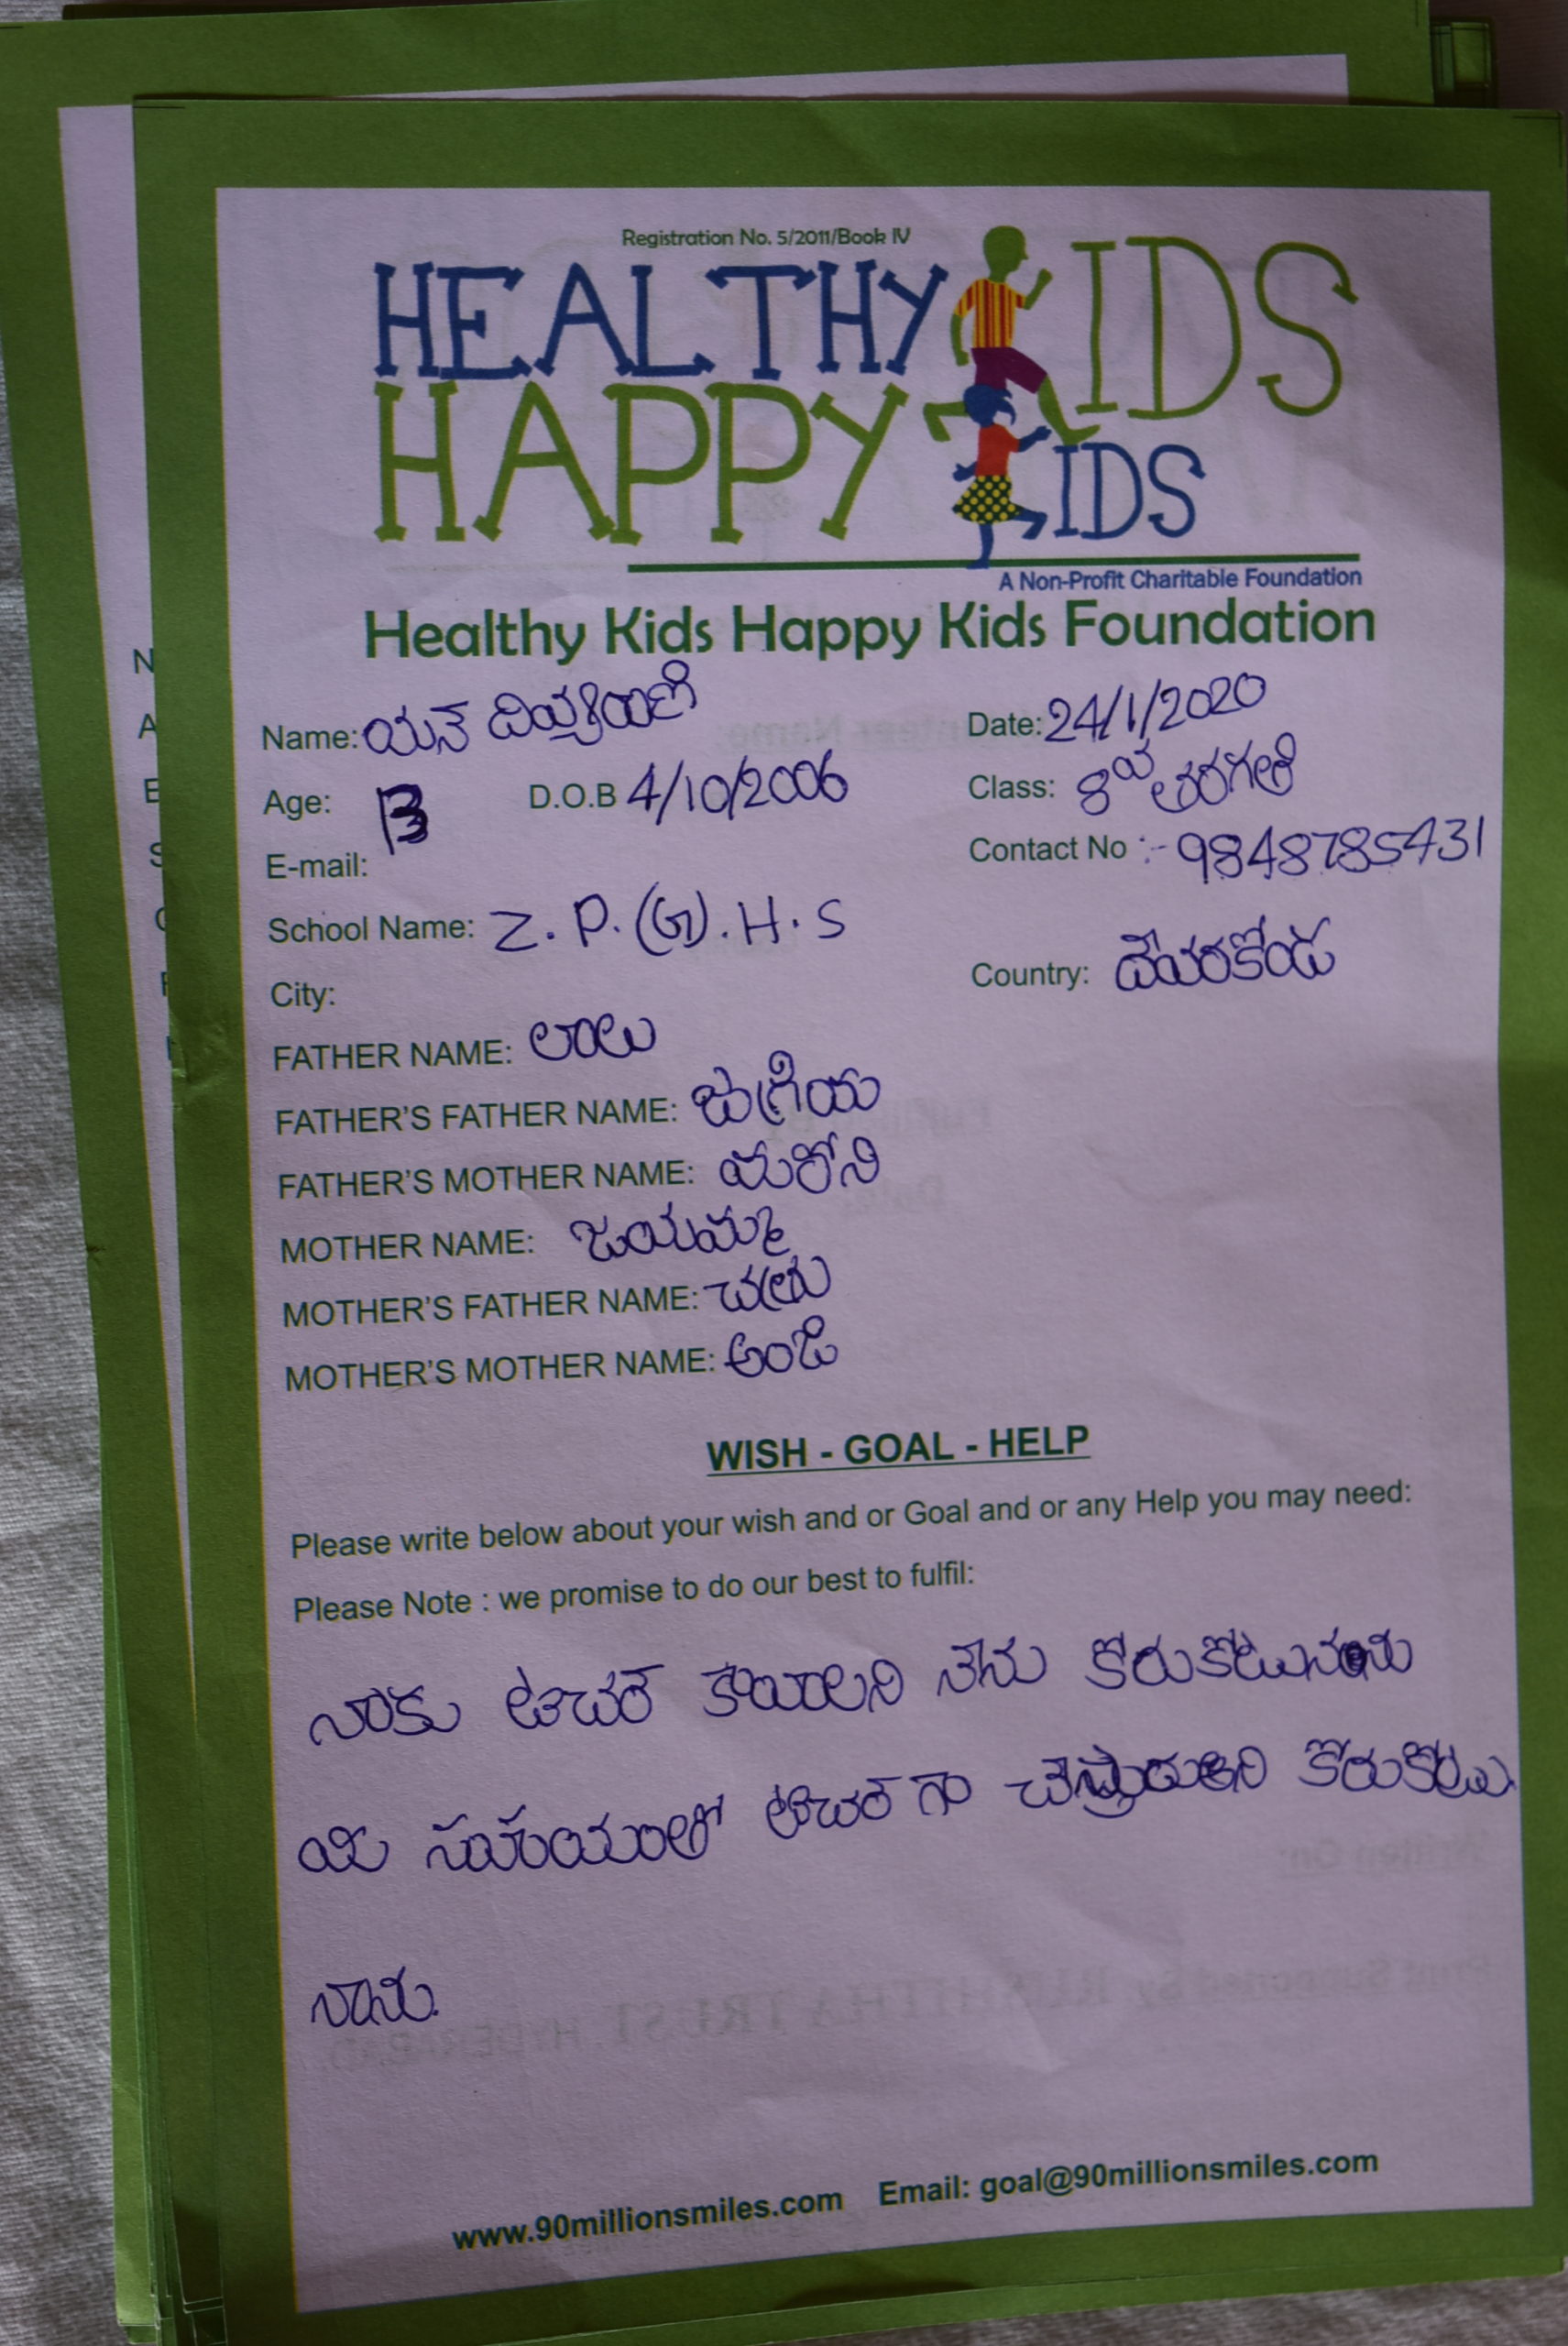 Registration No. 5/2011/Book IV
HEALTHY KIDS
HAPPY KIDS
A Non-Profit Charitable Foundation
Healthy Kids Happy Kids Foundation
Name: Date: 24/1/2020
Age: 13 D.O.B 4/10/2006 Class: 8వ తరగతి
E-mail: Contact No :- 9848785431
School Name: Z. P. (G). H. S
City: Country: దేవరకోండ
FATHER NAME: లాలు
FATHER'S FATHER NAME:
FATHER'S MOTHER NAME:
MOTHER NAME: జయమ్మ
MOTHER'S FATHER NAME:
MOTHER'S MOTHER NAME: అంజి
WISH - GOAL - HELP
Please write below about your wish and or Goal and or any Help you may need:
Please Note : we promise to do our best to fulfil:
నాకు టిచర్ కావాలని నేను
మి సహయంతో టిచర్ గా
నాను.
www.90millionsmiles.com Email: goal@90millionsmiles.com